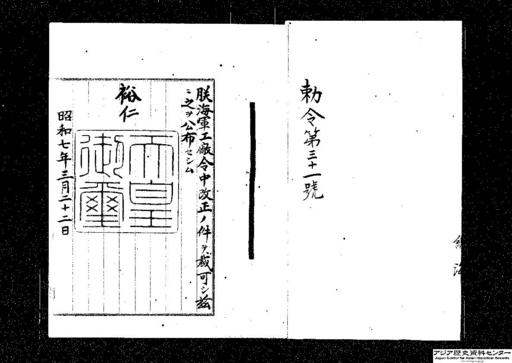 勅令第三十一號
朕海軍工廠令中改正ノ件ヲ裁可シ玆
ニ之ヲ公布セシム
裕仁
天皇
御璽
昭和七年三月二十二日
アジア歴史資料センター
Japan Center for Asian Historical Records